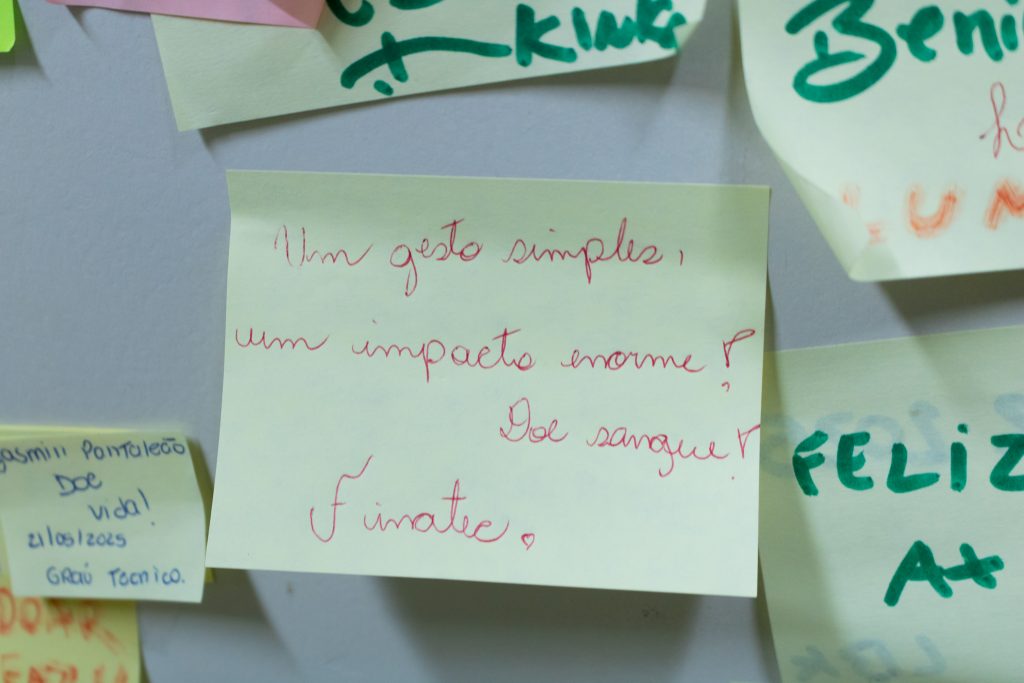 Um gesto simples,
um impacto enorme!
Doe sangue!
Finatec.
Pantaleão
Doe
vida!
21/05/2025
Grau Tecnico.
FELIZ
A+